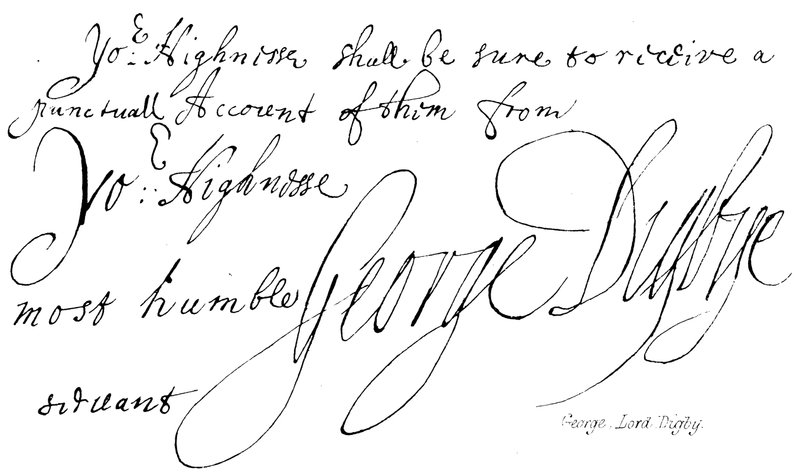 Yo.ʳ Highnisse shall be sure to receive a
punctuall Account of them from
Yo:ʳ Highnisse
most humble
servant
George Digbye
George, Lord Digby.